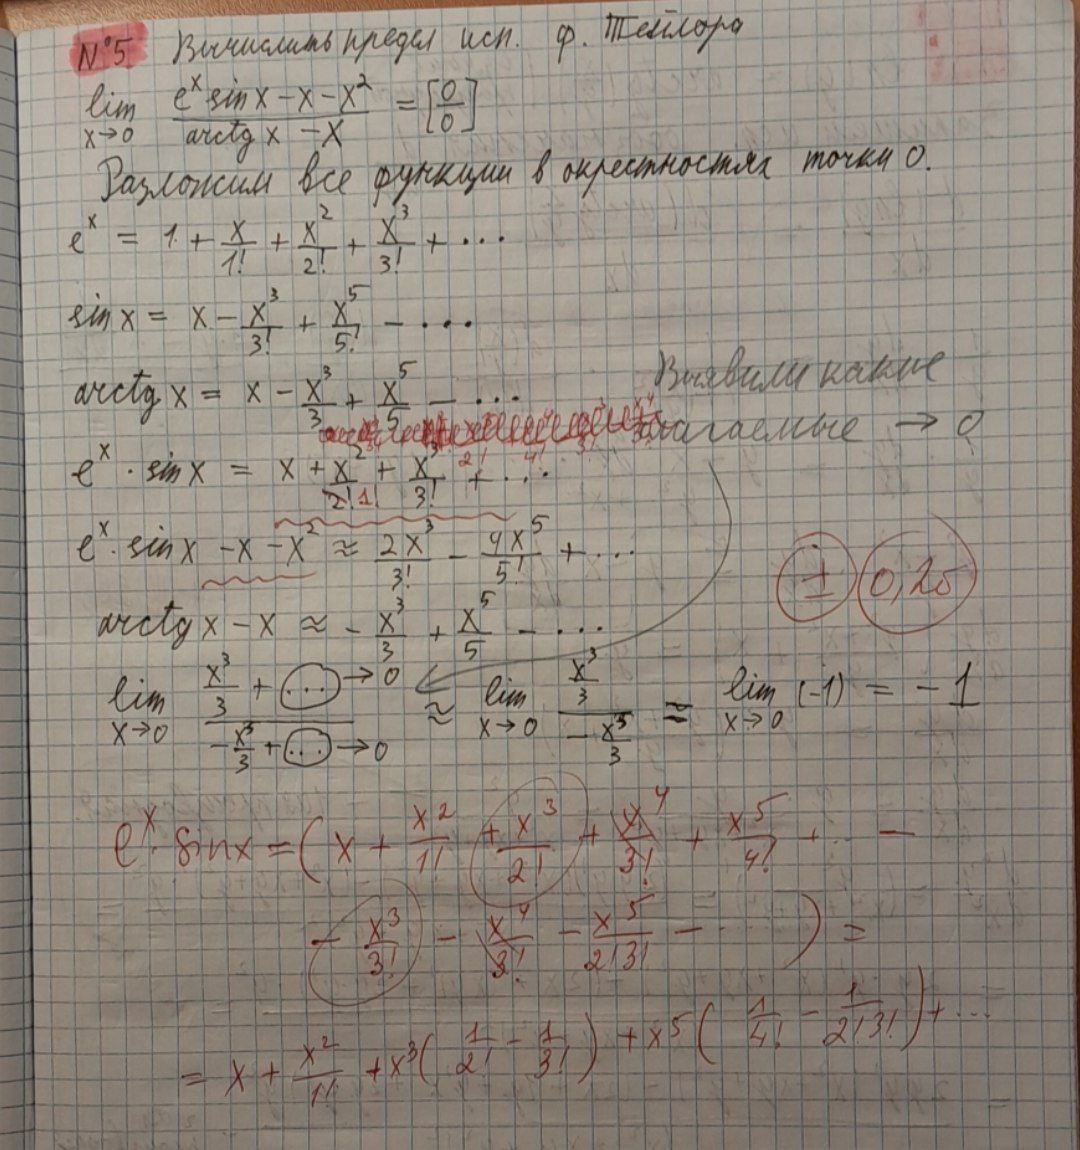 N°5 Вычислить предел исп. ф. Тейлора
lim x→0 (e^x sin x − x − x^2)/(arctg x − x) = [0/0]
Разложим все функции в окрестностях точки 0.
e^x = 1 + x/1! + x^2/2! + x^3/3! + ...
sin x = x − x^3/3! + x^5/5! − ...
arctg x = x − x^3/3 + x^5/5 − ...
Выявили какие
слагаемые → 0
e^x · sin x = x + x^2/2! 1! + x^3/3! + ...
2! 4!
e^x · sin x − x − x^2 ≈ 2x^3/3! − 4x^5/5! + ...
± 0,25
arctg x − x ≈ − x^3/3 + x^5/5 − ...
lim x→0 (x^3/3 + (...) → 0)/(− x^3/3 + (...) → 0) ≈ lim x→0 (x^3/3)/(− x^3/3) = lim x→0 (-1) = −1
e^x · sin x = (x + x^2/1! + x^3/2! + x^4/3! + x^5/4! + ... −
− x^3/3! − x^4/3! − x^5/2!3! − ...) =
= x + x^2/1! + x^3(1/2! − 1/3!) + x^5(1/4! − 1/2!3!) + ...